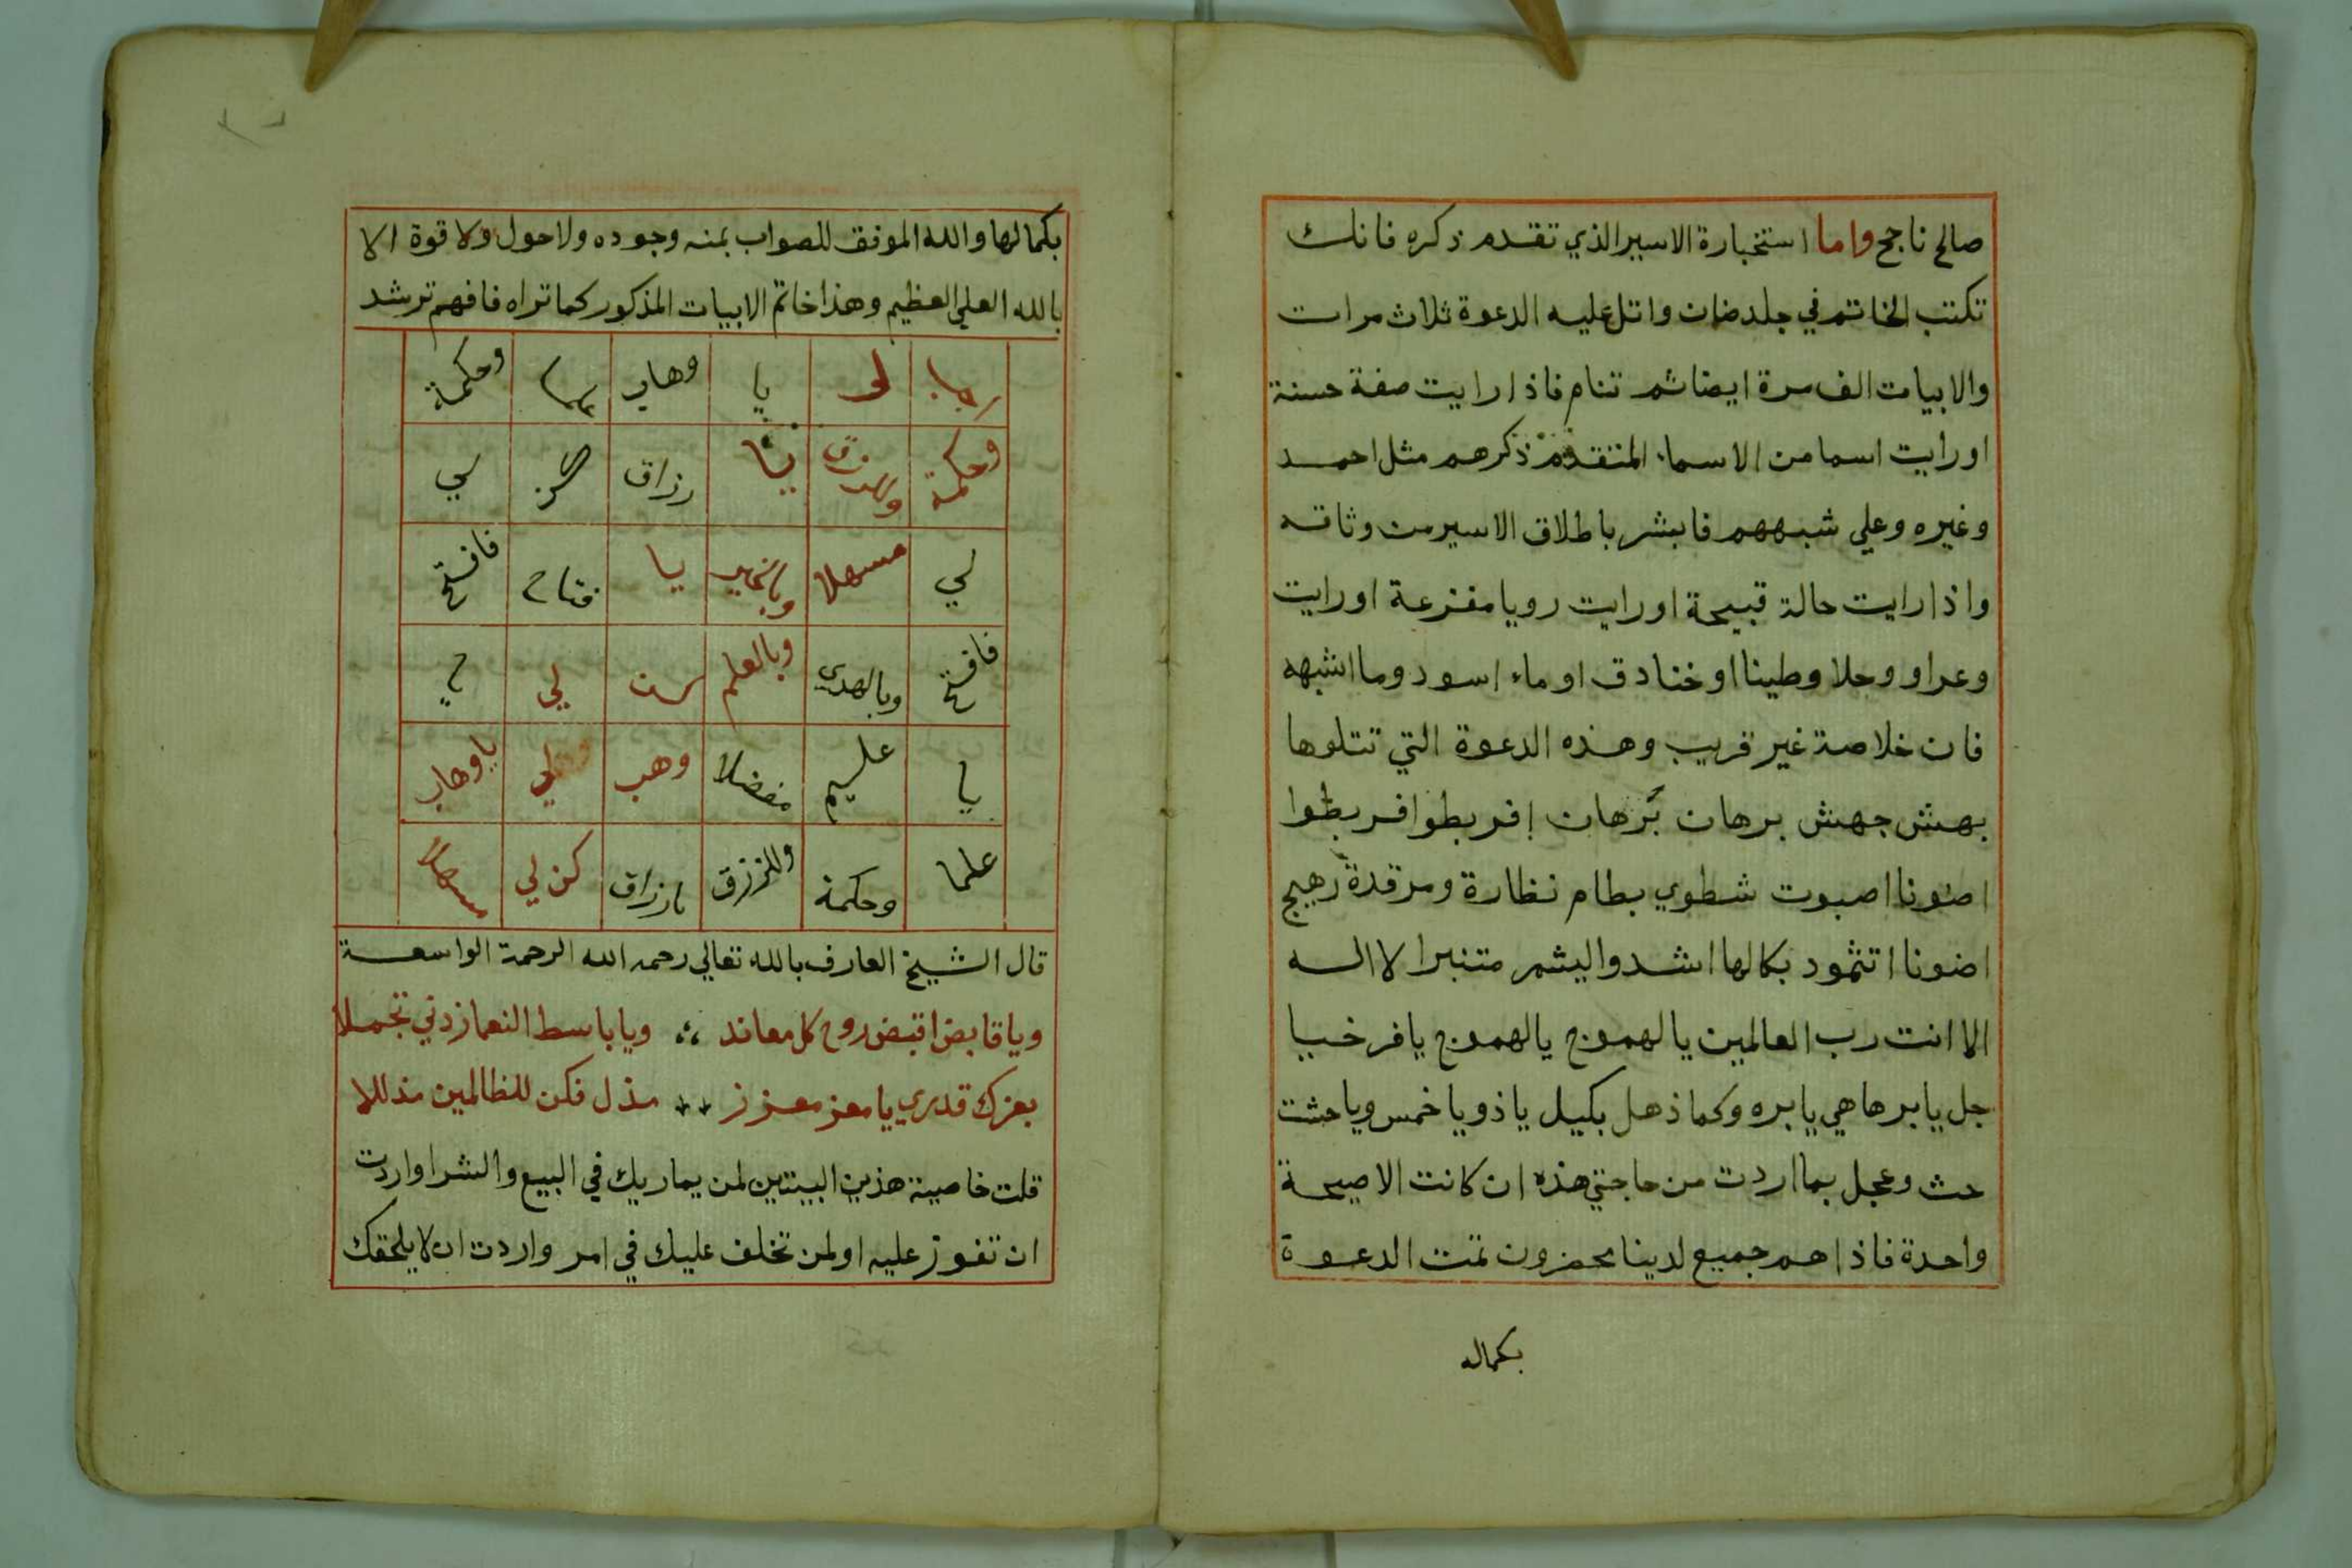 صالح ناجح واما استخبارة الاسير الذي تقدم ذكره فانك
تكتب الخاتم في جلد ضان واتل عليه الدعوة ثلاث مرات
والابيات الف مرة ايضا ثم تنام فاذا رايت صفة حسنة
او رايت اسما من الاسماء المتقدم ذكرهم مثل احمد
وغيره وعلي شبههم فابشر باطلاق الاسير من وثاقه
واذا رايت حالة قبيحة او رايت رويا مفزعة او رايت
وعرا و وحلا وطينا او خنادق او ماء اسود وما اشبهه
فان خلاصه غير قريب وهذه الدعوة التي تتلوها
بهش جهش برهان برهان إفربطوا افربطوا
اضونا اصبوت شطوي بطام نظارة ومرقدة رهيج
اضونا اتثمود بكالها اشدوا ليشم متنبرا لا اله
الا انت رب العالمين يالهموج يالهموج يا فرخسيا
جل يا برهاهي يا بره وكما ذهل بكيل يا ذو يا خمس ويا حثت
حث وعجل بما اردت من حاجتي هذه ان كانت الا صيحة
واحدة فاذا هم جميع لدينا محضرون تمت الدعوة
بكماله
بكمالها والله الموفق للصواب بمنه وجوده ولا حول ولا قوة الا
بالله العلي العظيم وهذا خاتم الابيات المذكور كما تراه فافهم ترشد
يا وهاب وحكمة
وحكمة يا رزاق لي
لي مسهلا يا فتاح فافتح
فافتح وبالهدي وبالعلم لي
يا عليم مفضلا وهب لي يا وهاب
علما وحكمة وللرزق يا رزاق كن لي مسهلا
قال الشيخ العارف بالله تعالي رحمه الله الرحمة الواسعة
ويا قابض اقبض روح كل معاند ؛ ويا باسط النعما زدني تجملا
بعزك قدري يا معز معزز مذل فكن للظالمين مذللا
قلت خاصية هذين البيتين لمن يماريك في البيع والشرا واردت
ان تفوز عليه او لمن تخلف عليك في امر واردت ان لا يلحقك